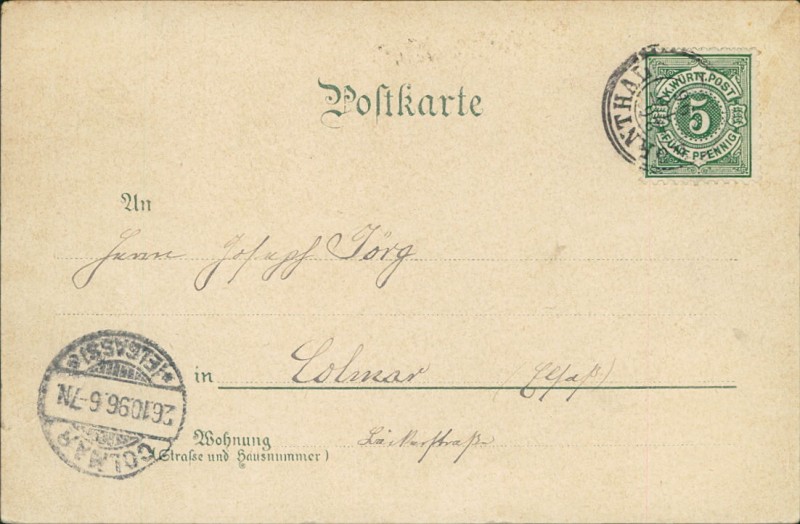 Postkarte
K.WÜRTT.POST
5
FÜNF PFENNIG
ENTHAL
An
Herrn Joseph Jörg
in Colmar (Elsaß)
Wohnung
(Strasse und Hausnummer)
COLMAR
26.10.96.6-7N.
*(ELSASS)*